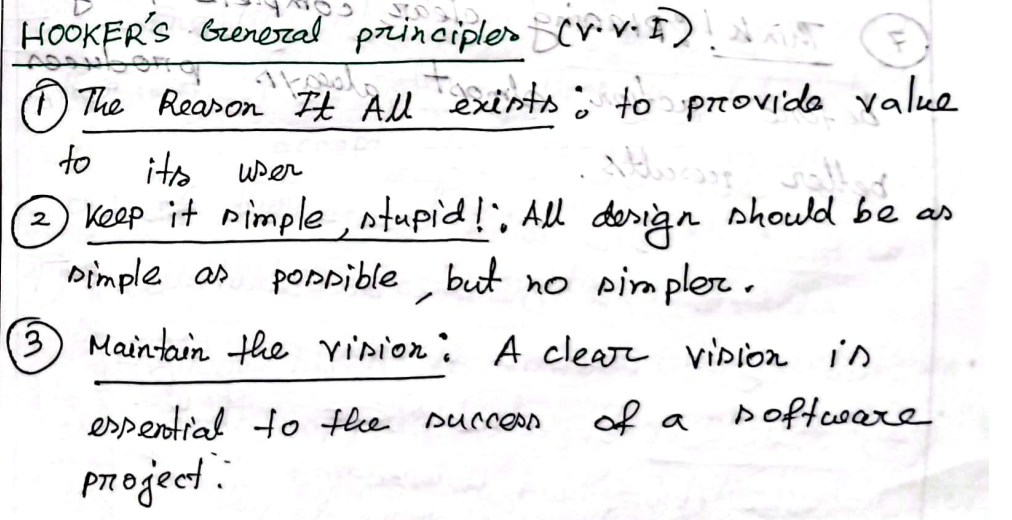 HOOKER'S General principles (V.V.I)
① The Reason It All exists : to provide value
to its user
② Keep it simple, stupid! : All design should be as
simple as possible, but no simpler.
③ Maintain the vision : A clear vision is
essential to the success of a software
project.